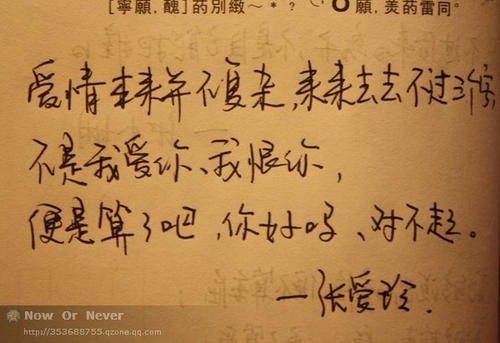 [寧願,醜]葯別緻～*?
願,羡葯雷同。
爱情本来并不复杂,来来去去不过三个字
不是我爱你、我恨你,
便是算了吧,你好吗、对不起。
一张爱玲.
Now Or Never
http://353688755.qzone.qq.com